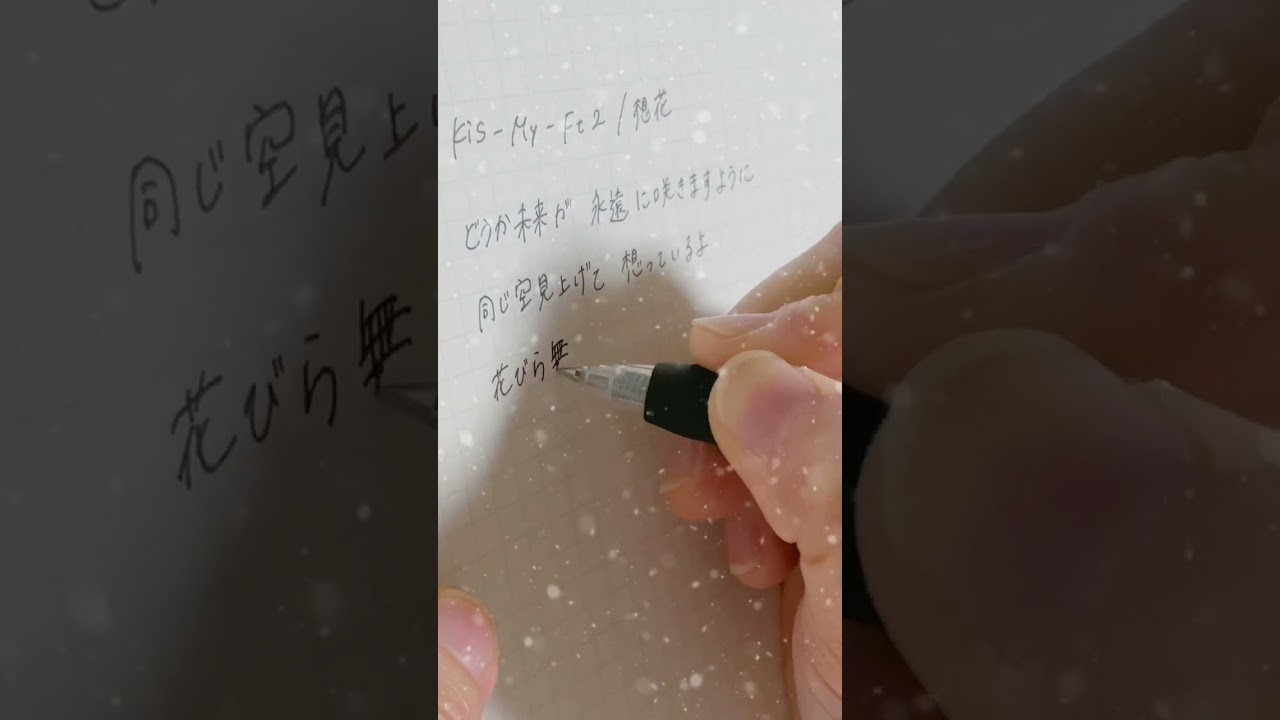 Kis-My-Ft2/想花
どうか未来が 永遠に咲きますように
同じ空見上げて 想っているよ
花びら無